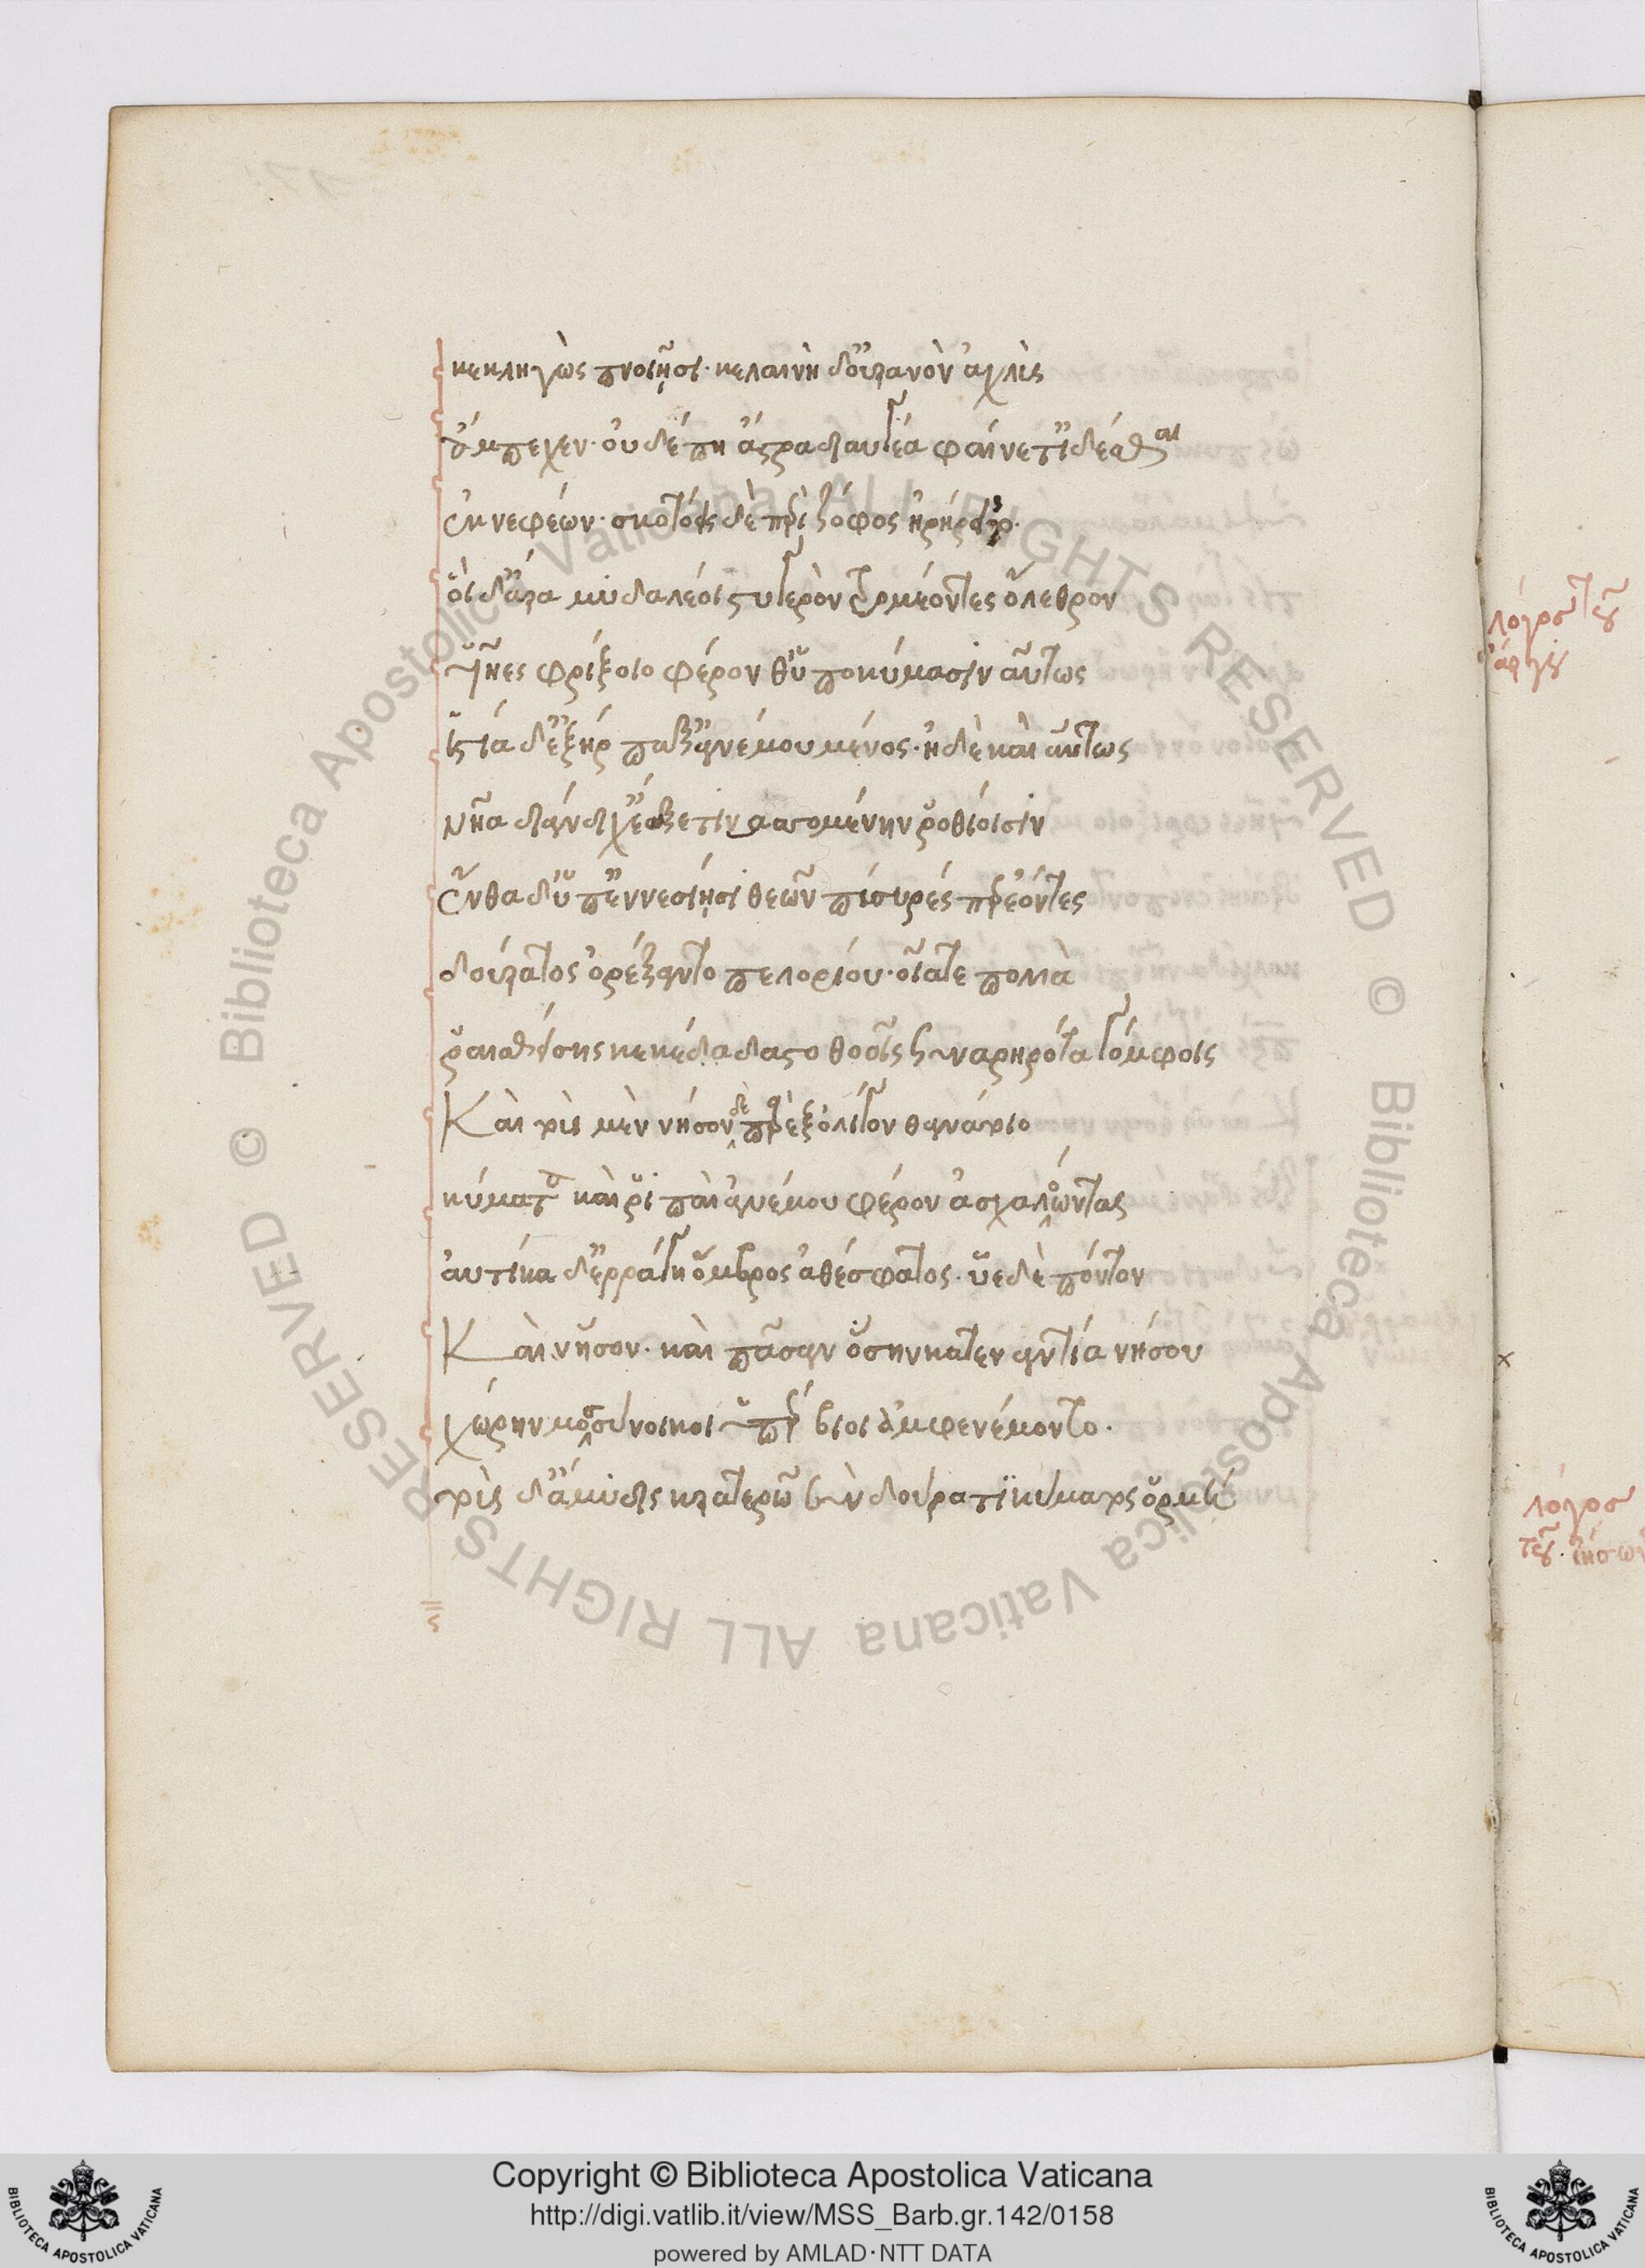 κεκληγὼς πνοιῇσι· κελαινὴ δ' οὐρανὸν ἀχλὺς
ἄμπεχεν· οὐδέ πη ἄστρα διαυγέα φαίνετ' ἰδέσθαι
ἐκ νεφέων· σκοτόεις δὲ περὶ ζόφος ἠρήρειστο·
οἱ δ' ἄρα μυδαλέοι στυγερὸν τρομέοντες ὄλεθρον
υἷῆες φρίξοιο φέρονθ' ὑπὸ κύμασιν αὔτως
ἱστία δ' ἐξήρπαξ' ἀνέμου μένος· ἠδὲ καὶ αὔτως
νῆα διάνδιχ' ἔαξε τινασσομένην ῥοθίοισιν
ἔνθα δ' ὑπ' ἐννεσίῃσι θεῶν πίσυρές περ ἐόντες
δούρατος ὀρέξαντο πελορίου· οἷά τε πολλὰ
ῥαισθείσης κεκέδαστο θοοῖς συναρηρότα γόμφοις
Καὶ τοὺς μὲν νῆσον δὲ παρὲξ ὀλίγον θανάτοιο
κύματα καὶ ῥιπαὶ ἀνέμου φέρον ἀσχαλόωντας
αὐτίκα δ' ἐρράγη ὄμβρος ἀθέσφατος· ὗε δὲ πόντον
Καὶ νῆσον· καὶ πᾶσαν ὅσην κατεναντία νήσου
χώρην μοσύνοικοι ὑπέρβιοι ἀμφενέμοντο·
τοὺς δ' ἄμυδις κρατερῷ σὺν δούρατι κύματος ὁρμὴ
λόγος τοῦ
ἄργου
λόγος
τοῦ· ἰήσων
Copyright © Biblioteca Apostolica Vaticana
http://digi.vatlib.it/view/MSS_Barb.gr.142/0158
powered by AMLAD·NTT DATA